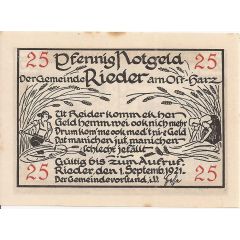 25 Pfennig Notgeld 25
Der Gemeinde Rieder am Ost-Harz
Ut Reider komm ek her
Geld hemm wei ook nich mehr
Drum kom'me ook med't
Dat manichen jut, manichen
schlecht jefällt
Gültig bis zum Aufruf.
25 Rieder, den 1. Septemb. 1921. 25
Der Gemeindevorstand. i.V.